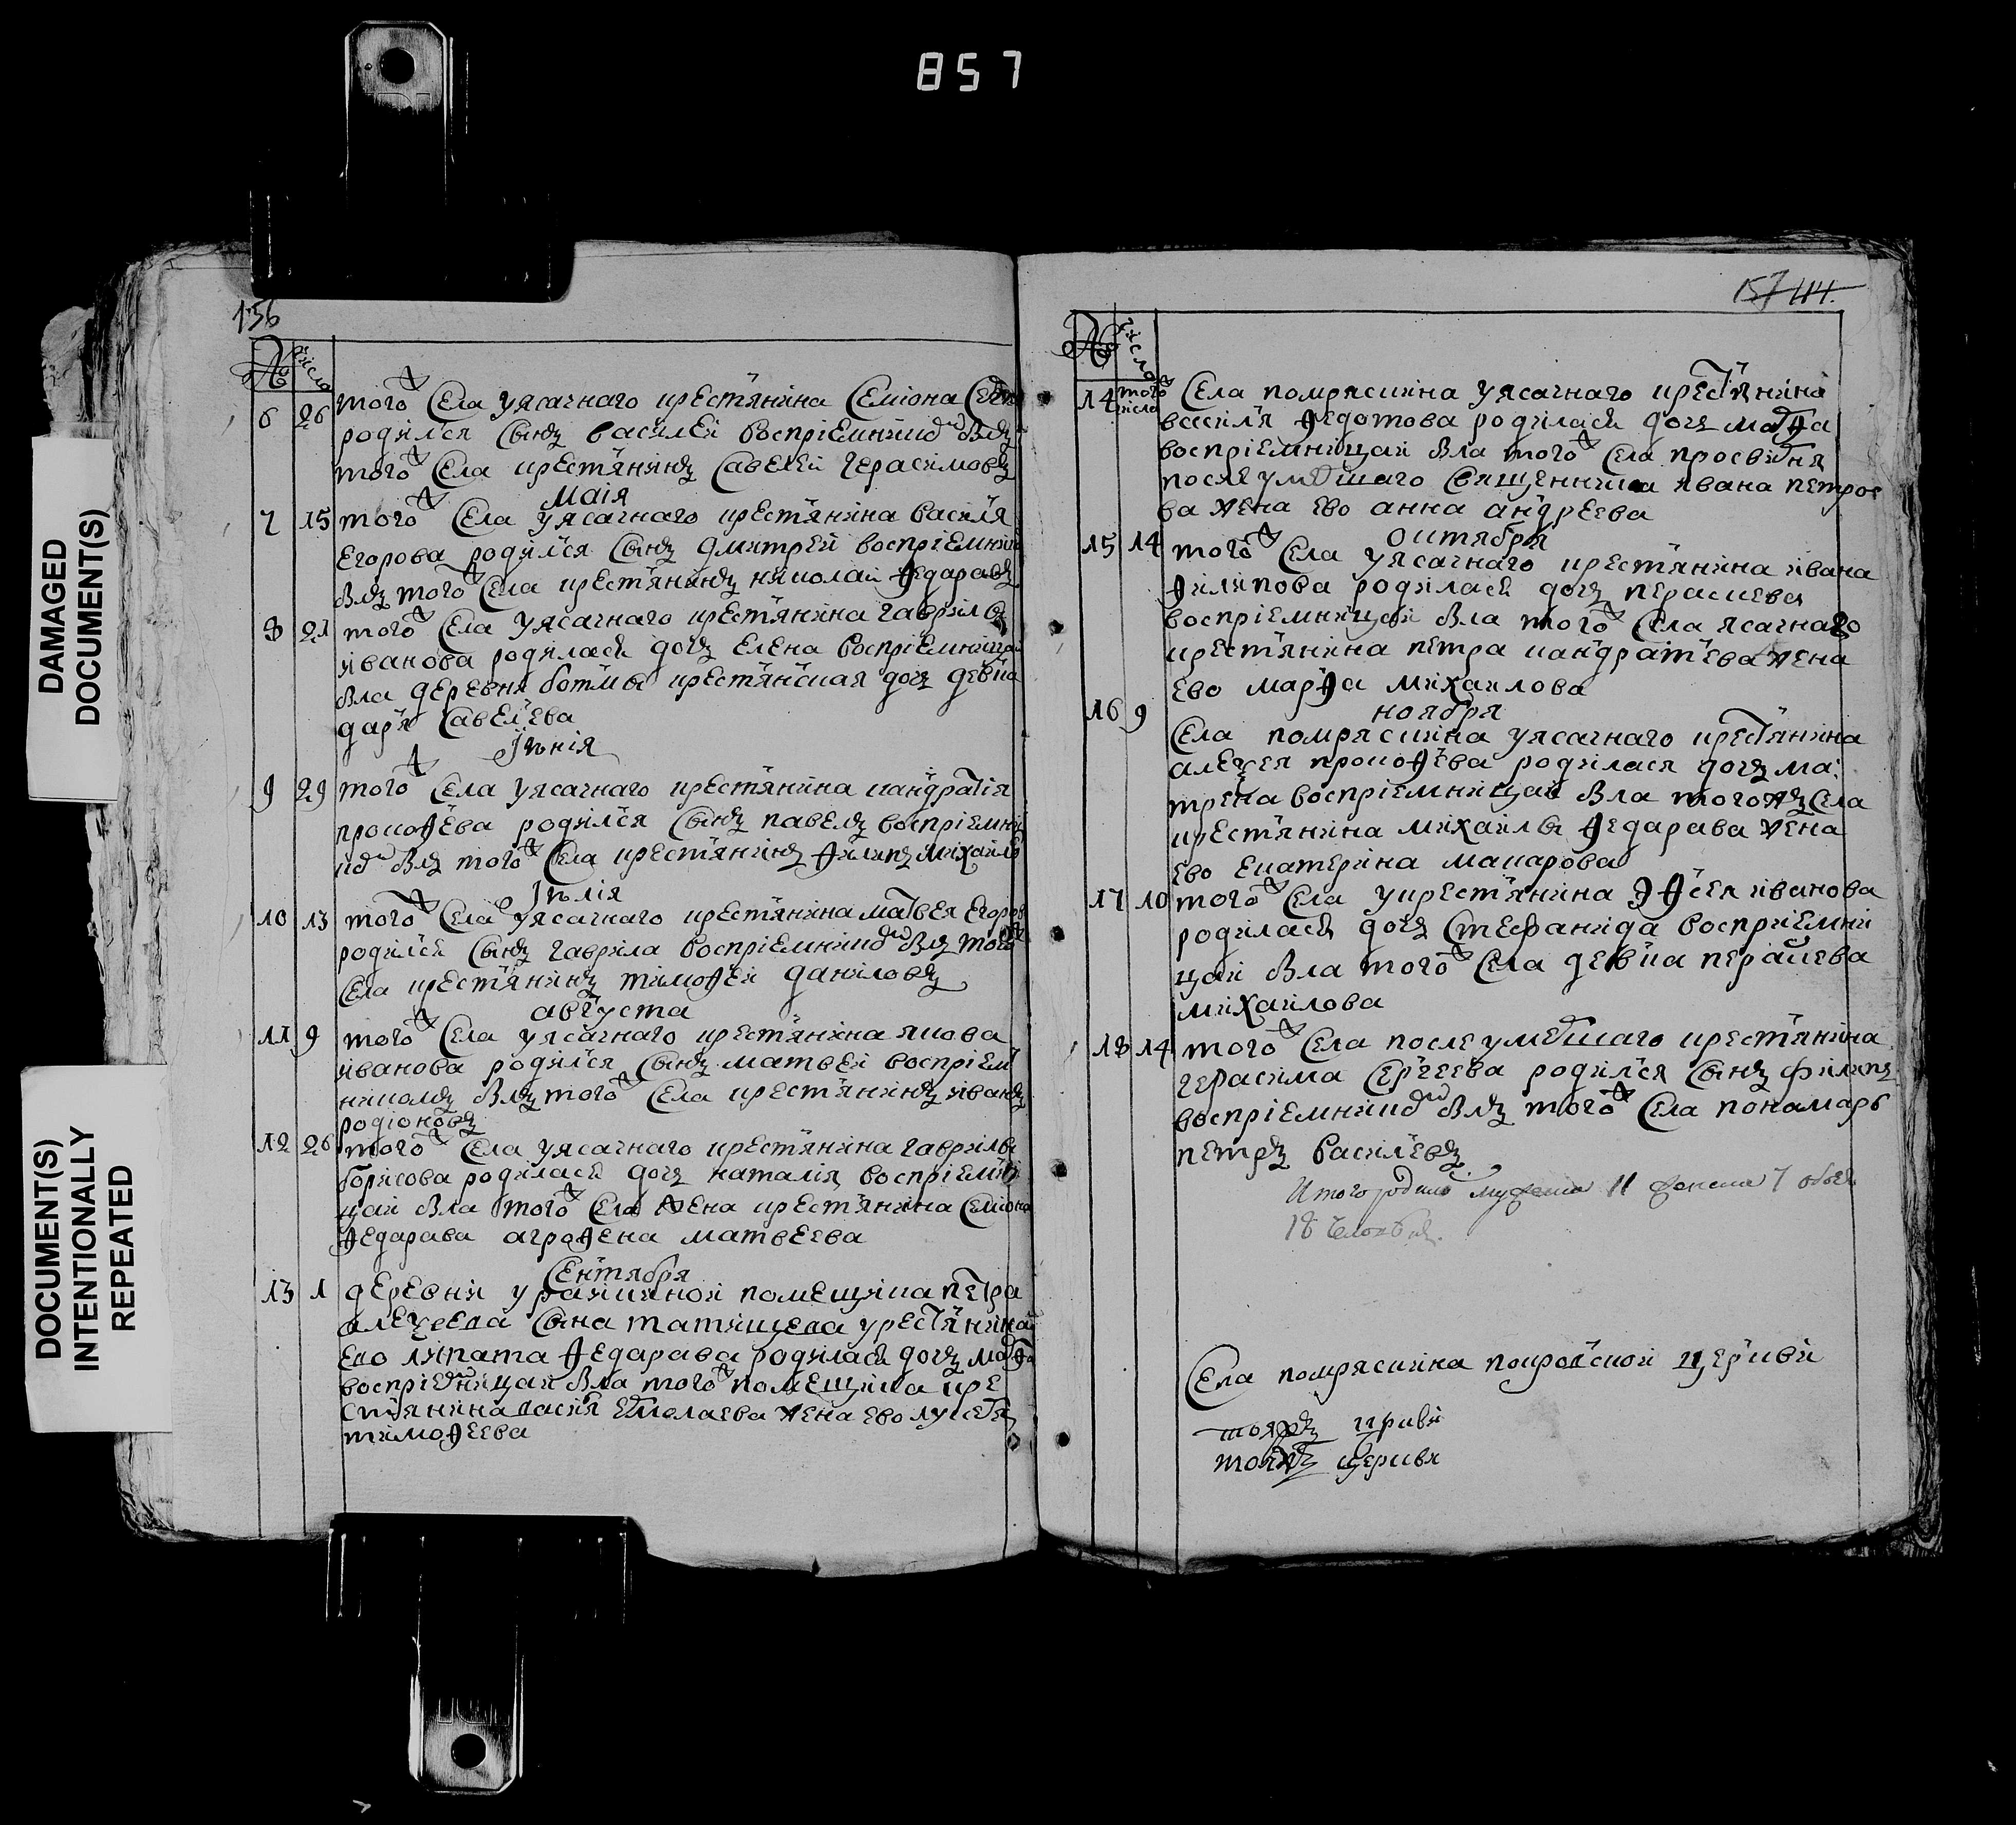 857
DAMAGED
DOCUMENT(S)
DOCUMENT(S)
INTENTIONALLY
REPEATED
156
№ число
6 26 тогож Села уясачнаго крестьянина Семiона
родился Сынъ василей воспрiемникомъ былъ
того ж Села крестьянинъ Савелей герасимовъ
маiя
7 15 тогож Села уясачнаго крестьянина василья
Егорова родился Сынъ дмитрей воспрiемник
былъ того ж Села крестьянинъ николай Ѳедаравъ
8 21 тогож Села уясачнаго крестьянина гаврилы
иванова родилась дочь Елена воспрiемницай
была деревни ботмы крестьянская дочь девка
дарья Савельева
Iюнiя
9 29 тогож Села уясачнаго крестьянина кандратiя
прокоѲьева родился Сынъ павелъ воспрiемни
комъ былъ тогож Села крестьянинъ Ѳилипъ михаило
Iюлiя
10 13 тогож Села уясачнаго крестьянина матвея Егоров
родился Сынъ гаврила воспрiемникомъ былъ того ж
Села крестьянинъ тимоѲей даниловъ
августа
11 9 тогож Села уясачнаго крестьянина якова
иванова родился Сынъ матвей воспрiем
никомъ былъ тогож Села крестьянинъ иванъ
родiоновъ
12 26 тогож Села уясачнаго крестьянина гаврилы
борисова родилась дочь наталiя воспрiемни
цай была тогож Села жена крестьянина Семiона
Ѳедарава агроѲена матвеева
Сентября
13 1 деревни помещика петра
алеѯеева Сына татищева крестьянина
Ево липата Ѳедарава родилась дочь марѲа
воспрiемницай была тогож помещика кре
стьянина василья Ермолаева жена ево лукерья
тимоѲеева
157 414.
№ число
14 того ж числа Села помряскина уясачнаго крестьянина
василья Ѳедотова родилась дочь марѲа
воспрiемницай была тогож Села просвирня
после умершаго Священника ивана петро
ва жена ево анна андреева
октября
15 14 тогож Села уясачнаго крестьянина ивана
Ѳилипова родилась дочь пераскева
воспрiемницай была тогож Села ясачнаго
крестьянина петра кандратьева жена
ево марѲа михаилова
ноября
16 9 Села помряскина уясачнаго крестьянина
алеѯея прокоѲьева родилася дочь ма
трена воспрiемницай была тогожъ Села
крестьянина михаилы Ѳедарава жена
ево Екатерина макарова
17 10 тогож Села укрестьянина иванова
родилась дочь Стефанида воспрiемни
цай была тогож Села девка пераскева
михаилова
18 14 тогож Села после умершаго крестьянина
герасима Сергеева родился Сынъ филипъ
воспрiемникомъ былъ тогож Села понамарь
петръ василевъ
Итого родило мужеска 11 женска 7 обоего
18 человекъ.
Села помряскина покровской церкви
тояжъ церкви